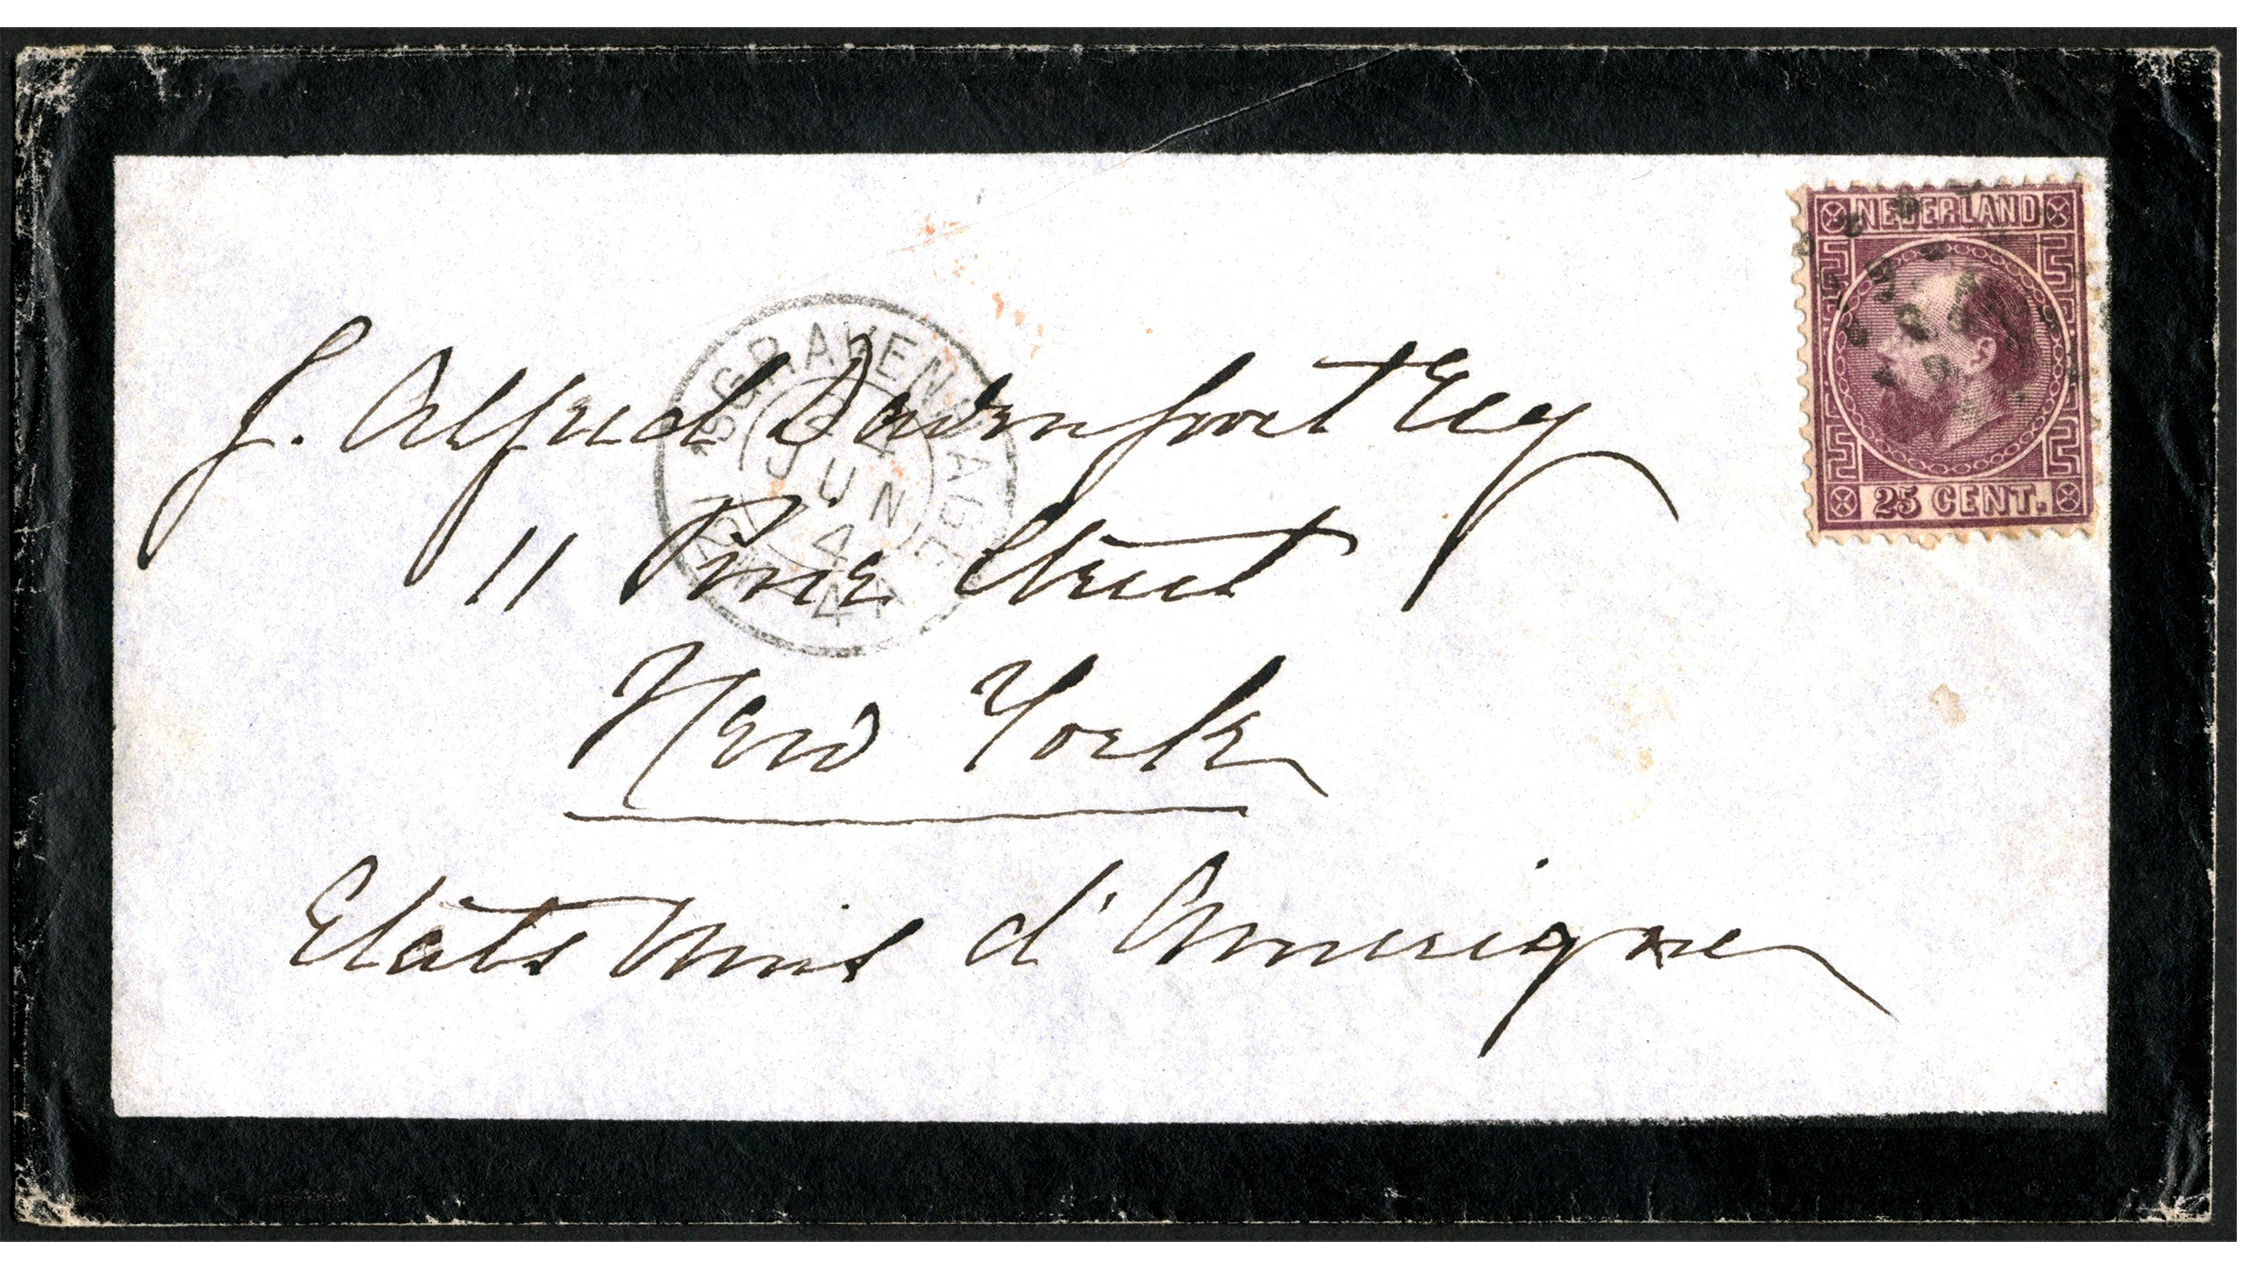 NEDERLAND
25 CENT.
'SGRAVENHAGE
JUN
4
J. Alfred Davenport Esq
11 Pine Street
New York
Etâts Unis d'Amerique